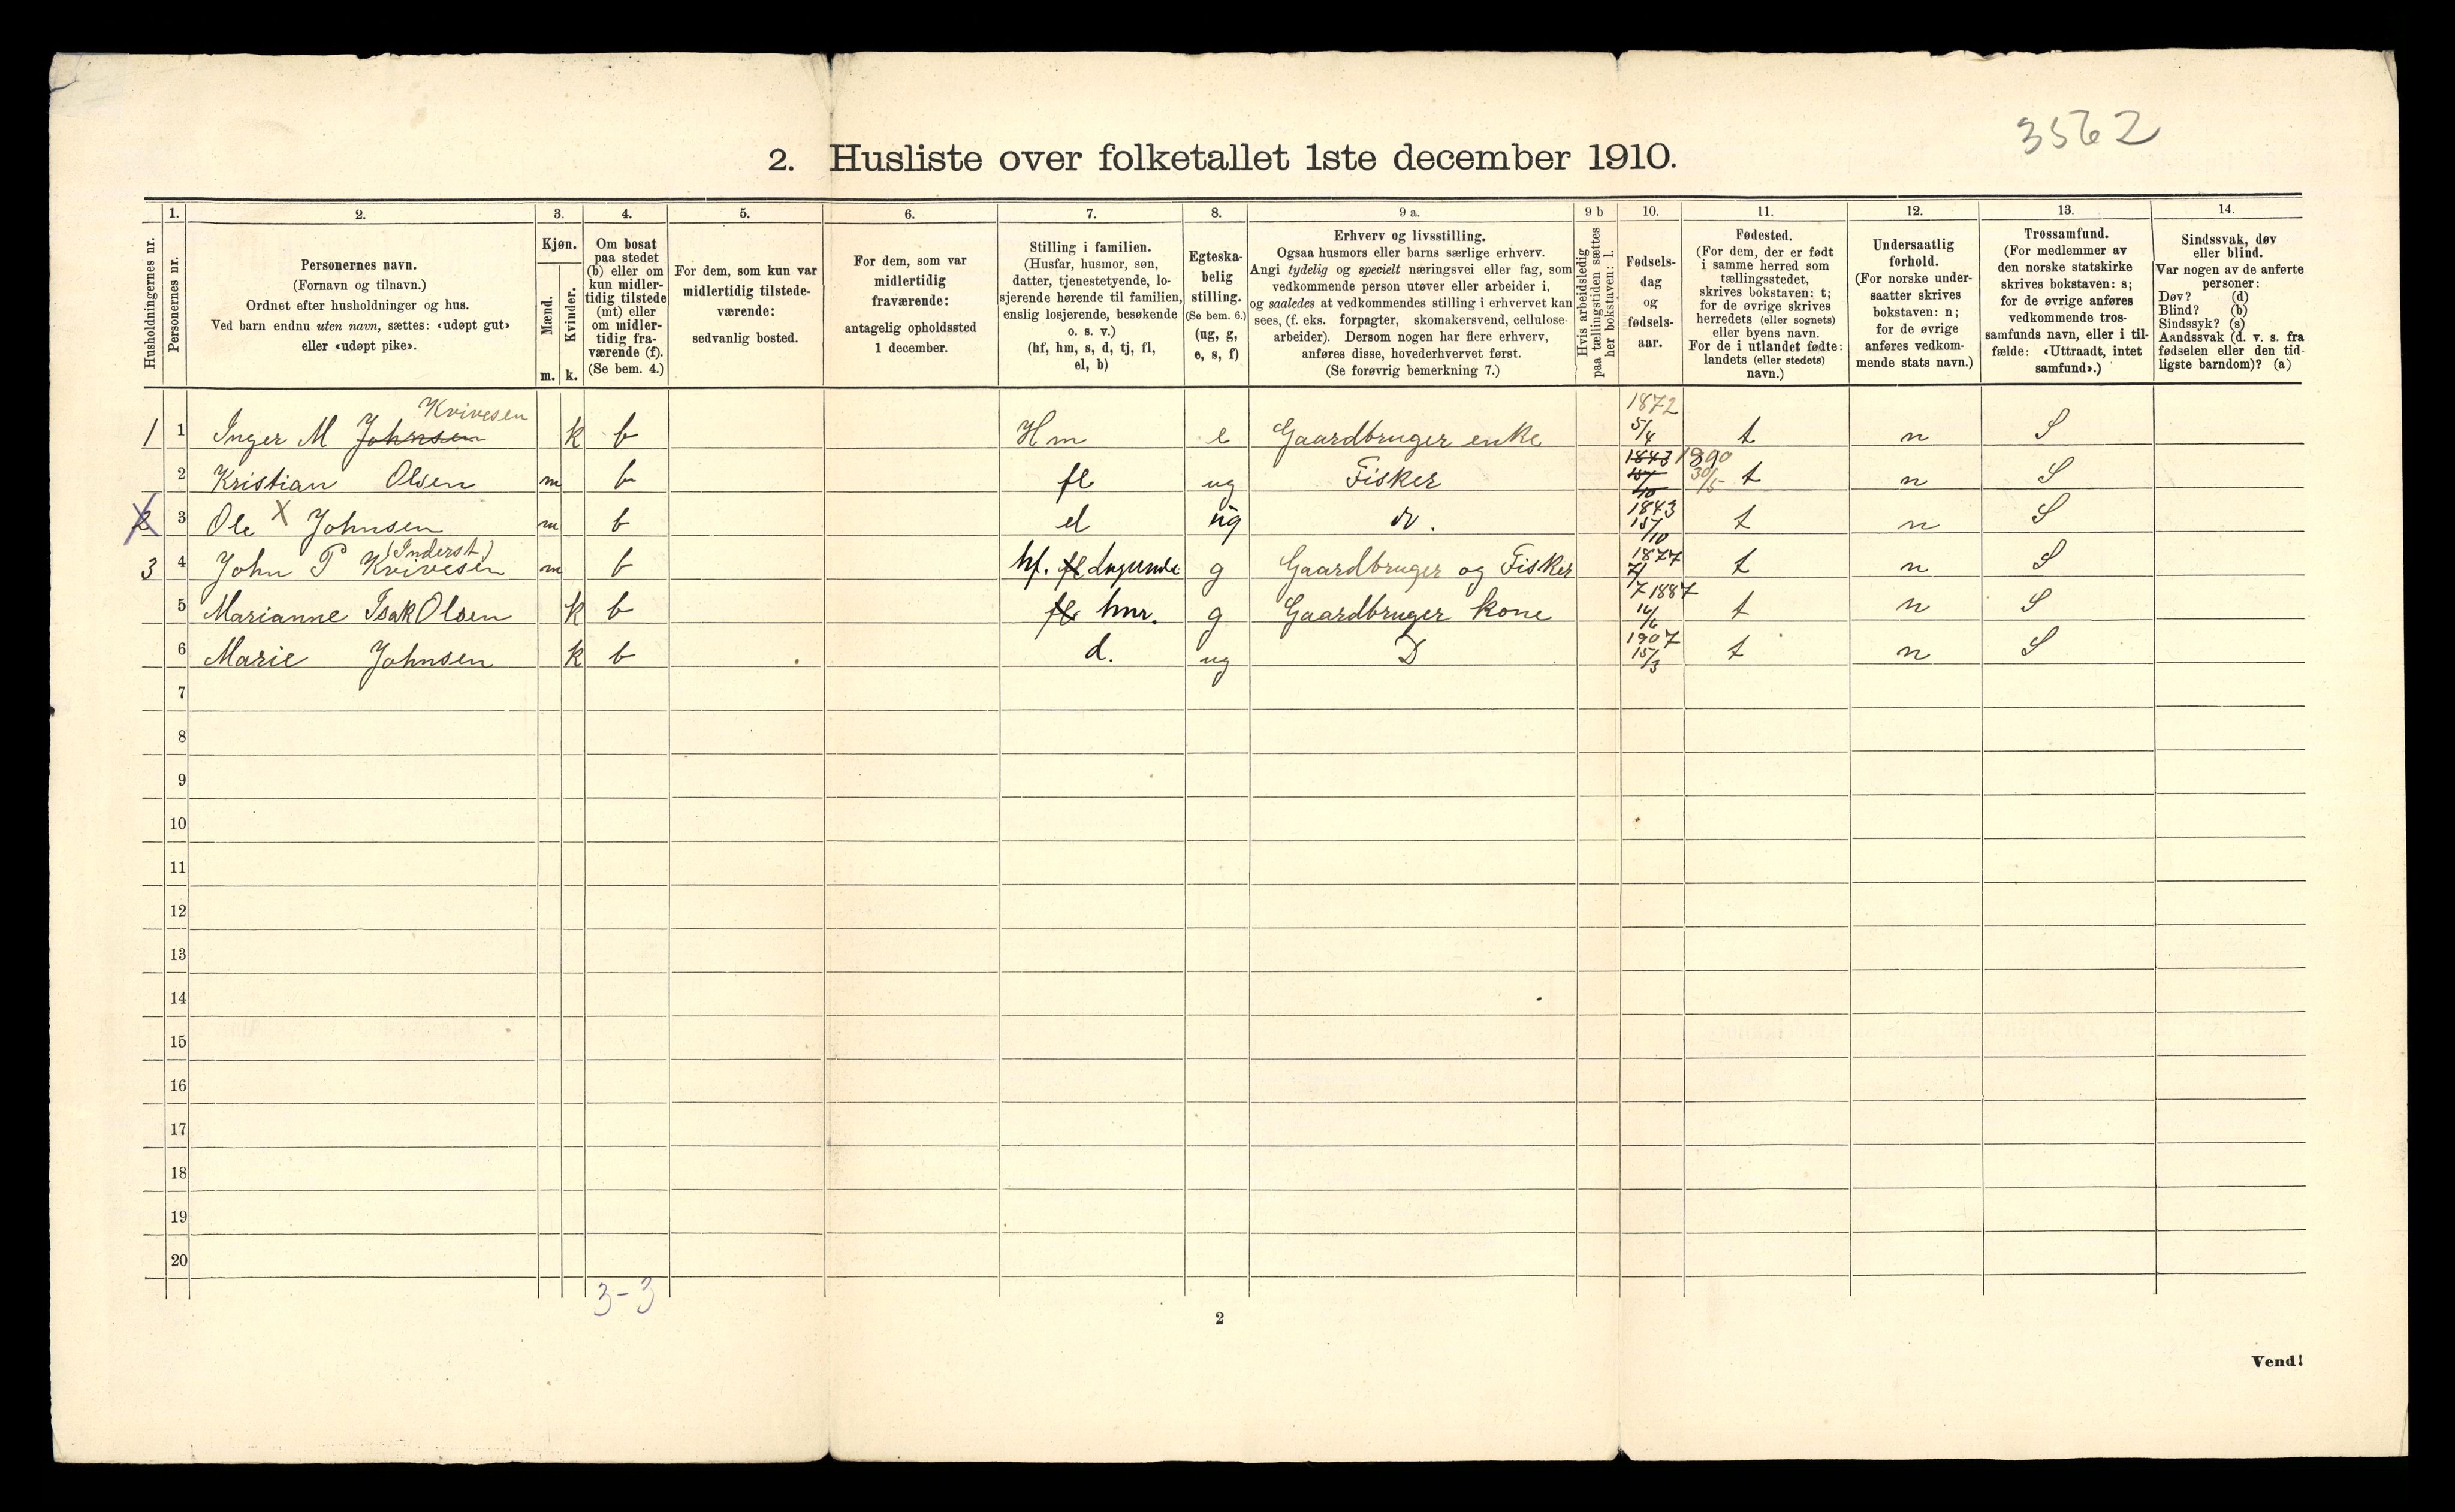 3562
2. Husliste over folketallet 1ste december 1910.
Husholdningernes nr.
1.
Personernes nr.
2.
Personernes navn.
(Fornavn og tilnavn.)
Ordnet efter husholdninger og hus.
Ved barn endnu uten navn, sættes: «udøpt gut»
eller «udøpt pike».
3.
Kjøn.
Mænd.
Kvinder.
m. k.
4.
Om bosat
paa stedet
(b) eller om
kun midler-
tidig tilstede
(mt) eller
om midler-
tidig fra-
værende (f).
(Se bem. 4.)
5.
For dem, som kun var
midlertidig tilstede-
værende:
sedvanlig bosted.
6.
For dem, som var
midlertidig
fraværende:
antagelig opholdssted
1 december.
7.
Stilling i familien.
(Husfar, husmor, søn,
datter, tjenestetyende, lo-
sjerende hørende til familien,
enslig losjerende, besøkende
o. s. v.)
(hf, hm, s, d, tj, fl,
el, b)
8.
Egteska-
belig
stilling.
(Se bem. 6.)
(ug, g,
e, s, f)
9 a.
Erhverv og livsstilling.
Ogsaa husmors eller barns særlige erhverv.
Angi tydelig og specielt næringsvei eller fag, som
vedkommende person utøver eller arbeider i,
og saaledes at vedkommendes stilling i erhvervet kan
sees, (f. eks. forpagter, skomakersvend, cellulose-
arbeider). Dersom nogen har flere erhverv,
anføres disse, hovederhvervet først.
(Se forøvrig bemerkning 7.)
9 b
Hvis arbeidsledig
paa tællingstiden sættes
her bokstaven: l.
10.
Fødsels-
dag
og
fødsels-
aar.
11.
Fødested.
(For dem, der er født
i samme herred som
tællingsstedet,
skrives bokstaven: t;
for de øvrige skrives
herredets (eller sognets)
eller byens navn.
For de i utlandet fødte:
landets (eller stedets)
navn.)
12.
Undersaatlig
forhold.
(For norske under-
saatter skrives
bokstaven: n;
for de øvrige
anføres vedkom-
mende stats navn.)
13.
Trossamfund.
(For medlemmer av
den norske statskirke
skrives bokstaven: s;
for de øvrige anføres
vedkommende tros-
samfunds navn, eller i til-
fælde: «Uttraadt, intet
samfund».)
14.
Sindssvak, døv
eller blind.
Var nogen av de anførte
personer:
Døv? (d)
Blind? (b)
Sindssyk? (s)
Aandssvak (d. v. s. fra
fødselen eller den tid-
ligste barndom)? (a)
Kvivesen 1872
1 1 Inger M Johnsen k b Hm e Gaardbruger enke 5/4 t n S
1843 1890
2 Kristian Olsen m b fl ug Fisker 15/10 30/5 t n S
1843
2 3 Ole X Johnsen m b el ug 15/10 t n S
(Inderst) 1877
3 4 John P Kvivesen m b hf. fl g Gaardbruger og Fisker t n S
1887
5 Marianne Isak Olsen k b fl hm. g Gaardbruger kone 16/6 t n S
1907
6 Marie Johnsen k b d. ug D 15/3 t n S
7
8
9
10
11
12
13
14
15
16
17
18
19
20
3-3
2
Vend!